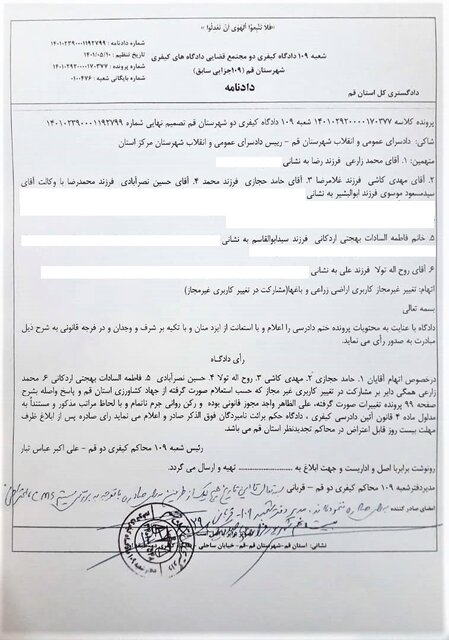 «فَلَا تَتَّبِعُوا الْهَوَىٰ أَنْ تَعْدِلُوا»
شعبه ۱۰۹ دادگاه کیفری دو مجتمع قضایی دادگاه های کیفری
شهرستان قم (۱۰۹جزایی سابق)
دادنامه
شماره دادنامه : ۱۴۰۱۰۲۳۹۰۰۰۱۱۹۲۷۹۹
تاریخ تنظیم : ۱۴۰۱/۰۵/۱۰
شماره پرونده : ۱۴۰۱۰۲۹۲۰۰۰۰۱۷۰۳۷۷
شماره بایگانی شعبه : ۰۱۰۰۴۷۶
دادگستری کل استان قم
پرونده کلاسه ۱۴۰۱۰۲۹۲۰۰۰۰۱۷۰۳۷۷ شعبه ۱۰۹ دادگاه کیفری دو شهرستان قم تصمیم نهایی شماره ۱۴۰۱۰۲۳۹۰۰۰۱۱۹۲۷۹۹
شاکی: دادسرای عمومی و انقلاب شهرستان قم - رییس دادسرای عمومی و انقلاب شهرستان مرکز استان
متهمین: ۱. آقای محمد زارعی فرزند رضا به نشانی
۲. آقای مهدی کاشی فرزند غلامرضا ۳. آقای حامد حجازی فرزند محمد ۴. آقای حسین نصرآبادی فرزند محمدرضا با وکالت آقای
سیدمسعود موسوی فرزند ابوالبشیر به نشانی
۵. خانم فاطمه السادات بهجتی اردکانی فرزند سیدابوالقاسم به نشانی
۶. آقای روح اله تولا فرزند علی به نشانی
اتهام: تغییر غیرمجاز کاربری اراضی زراعی و باغها(مشارکت در تغییر کاربری غیرمجاز)
بسمه تعالی
دادگاه با عنایت به محتویات پرونده ختم دادرسی را اعلام و با استعانت از ایزد منان و با تکیه بر شرف و وجدان و در فرجه قانونی به شرح ذیل
مبادرت به صدور رأی می نماید.
رأی دادگاه
درخصوص اتهام آقایان ۱. حامد حجازی ۲. مهدی کاشی ۳. روح اله تولا ۴. حسین نصرآبادی ۵. فاطمه السادات بهجتی اردکانی ۶. محمد
زارعی همگی دایر بر مشارکت در تغییر کاربری غیر مجاز که حسب استعلام صورت گرفته از جهاد کشاورزی استان قم و پاسخ واصله بشرح
صفحه ۹۹ پرونده تغییرات صورت گرفته، علی الظاهر واجد مجوز قانونی بوده و رکن روانی جرم ناتمام و با لحاظ مراتب مذکور و مستنداً به
مدلول ماده ۴ قانون آئین دادرسی کیفری ، دادگاه حکم برائت نامبردگان فوق الذکر صادر و اعلام می نماید رای صادره پس از ابلاغ ظرف
مهلت بیست روز قابل اعتراض در محاکم تجدیدنظر استان قم می باشد.
رئیس شعبه ۱۰۹ محاکم کیفری دو قم - علی اکبر عباس تبار
رونوشت برابربا اصل و اداریست و جهت ابلاغ به ---------- تهیه و ارسال می گردد.
مدیردفترشعبه ۱۰۹ محاکم کیفری دو قم - قربانی
امضای صادر کننده
نشانی: استان قم-شهرستان قم-قم- خیابان ساحلی